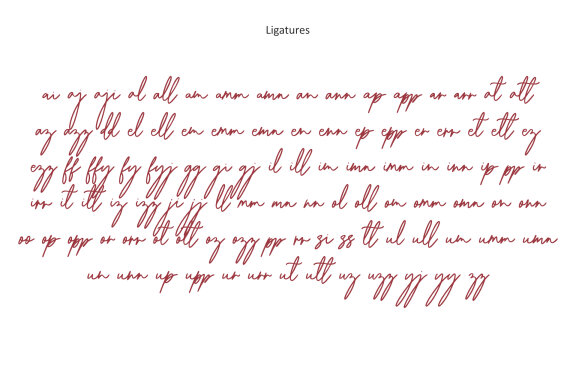 Ligatures
ai aj aji al all am amm amn an ann ap app ar arr at att
az azz dd el ell em emm emn en enn ep epp er err et ett ez
ezz ff ffy fy fyj gg gi gj il ill im imn imm in inn ip pp ir
irr it itt iz izz ji jj ll mm mn nn ol oll om omm omn on onn
oo op opp or orr ot ott oz ozz pp rr si ss tt ul ull um umm umn
un unn up upp ur urr ut utt uz uzz yj yy zz